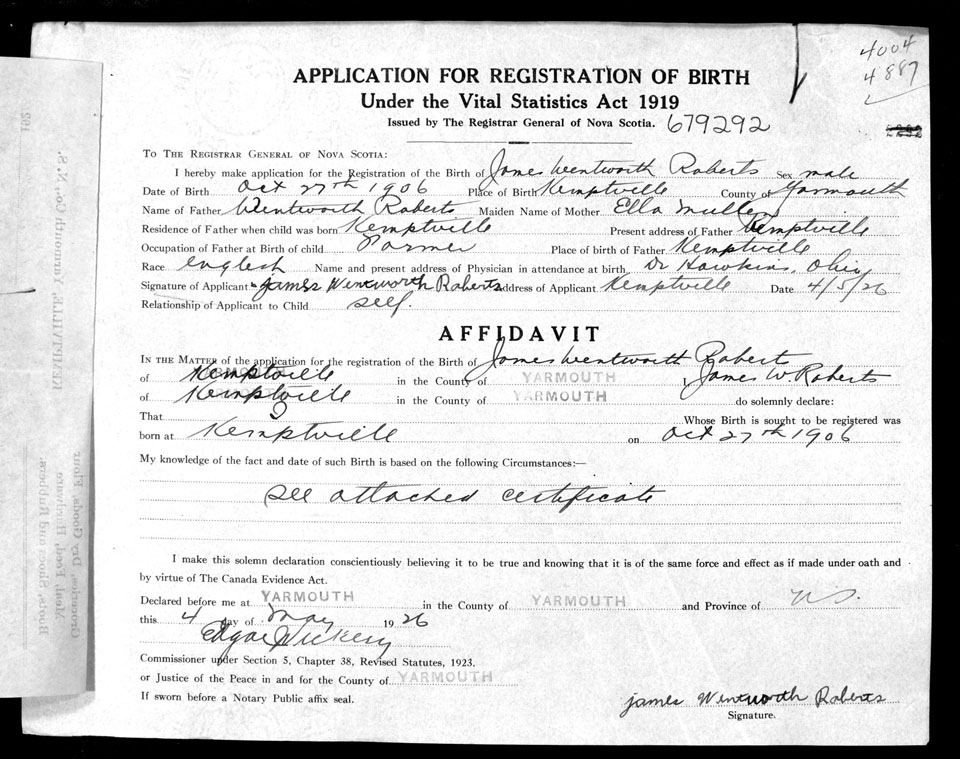 4004
4887
APPLICATION FOR REGISTRATION OF BIRTH
Under the Vital Statistics Act 1919
Issued by The Registrar General of Nova Scotia. 679292
TO THE REGISTRAR GENERAL OF NOVA SCOTIA:
I hereby make application for the Registration of the Birth of James Wentworth Roberts Sex male
Date of Birth Oct 27th 1906 Place of Birth Kemptville County of Yarmouth
Name of Father Wentworth Roberts Maiden Name of Mother Ella Mullen
Residence of Father when child was born Kemptville Present address of Father Kemptville
Occupation of Father at Birth of child Farmer Place of birth of Father Kemptville
Race English Name and present address of Physician in attendance at birth, Dr Hawkins, Ohio
Signature of Applicant James Wentworth Roberts address of Applicant Kemptville Date 4/5/26
Relationship of Applicant to Child self.
AFFIDAVIT
IN THE MATTER of the application for the registration of the Birth of James Wentworth Roberts
of Kemptville in the County of YARMOUTH I James W. Roberts
of Kemptville in the County of YARMOUTH do solemnly declare:
That I Whose Birth is sought to be registered was
born at Kemptville on Oct 27th 1906
My knowledge of the fact and date of such Birth is based on the following Circumstances:—
See attached certificate
I make this solemn declaration conscientiously believing it to be true and knowing that it is of the same force and effect as if made under oath and
by virtue of The Canada Evidence Act.
Declared before me at YARMOUTH in the County of YARMOUTH and Province of N.S.
this 4 day of May 1926
Edgar Vickery
Commissioner under Section 5, Chapter 38, Revised Statutes, 1923.
or Justice of the Peace in and for the County of YARMOUTH
If sworn before a Notary Public affix seal.
james Wentworth Roberts
Signature.
192
KEMPTVILLE, Yarmouth Co., N. S.
Groceries, Dry Goods, Flour
Meal, Feed, Hardware
Boots, Shoes and Rubbers